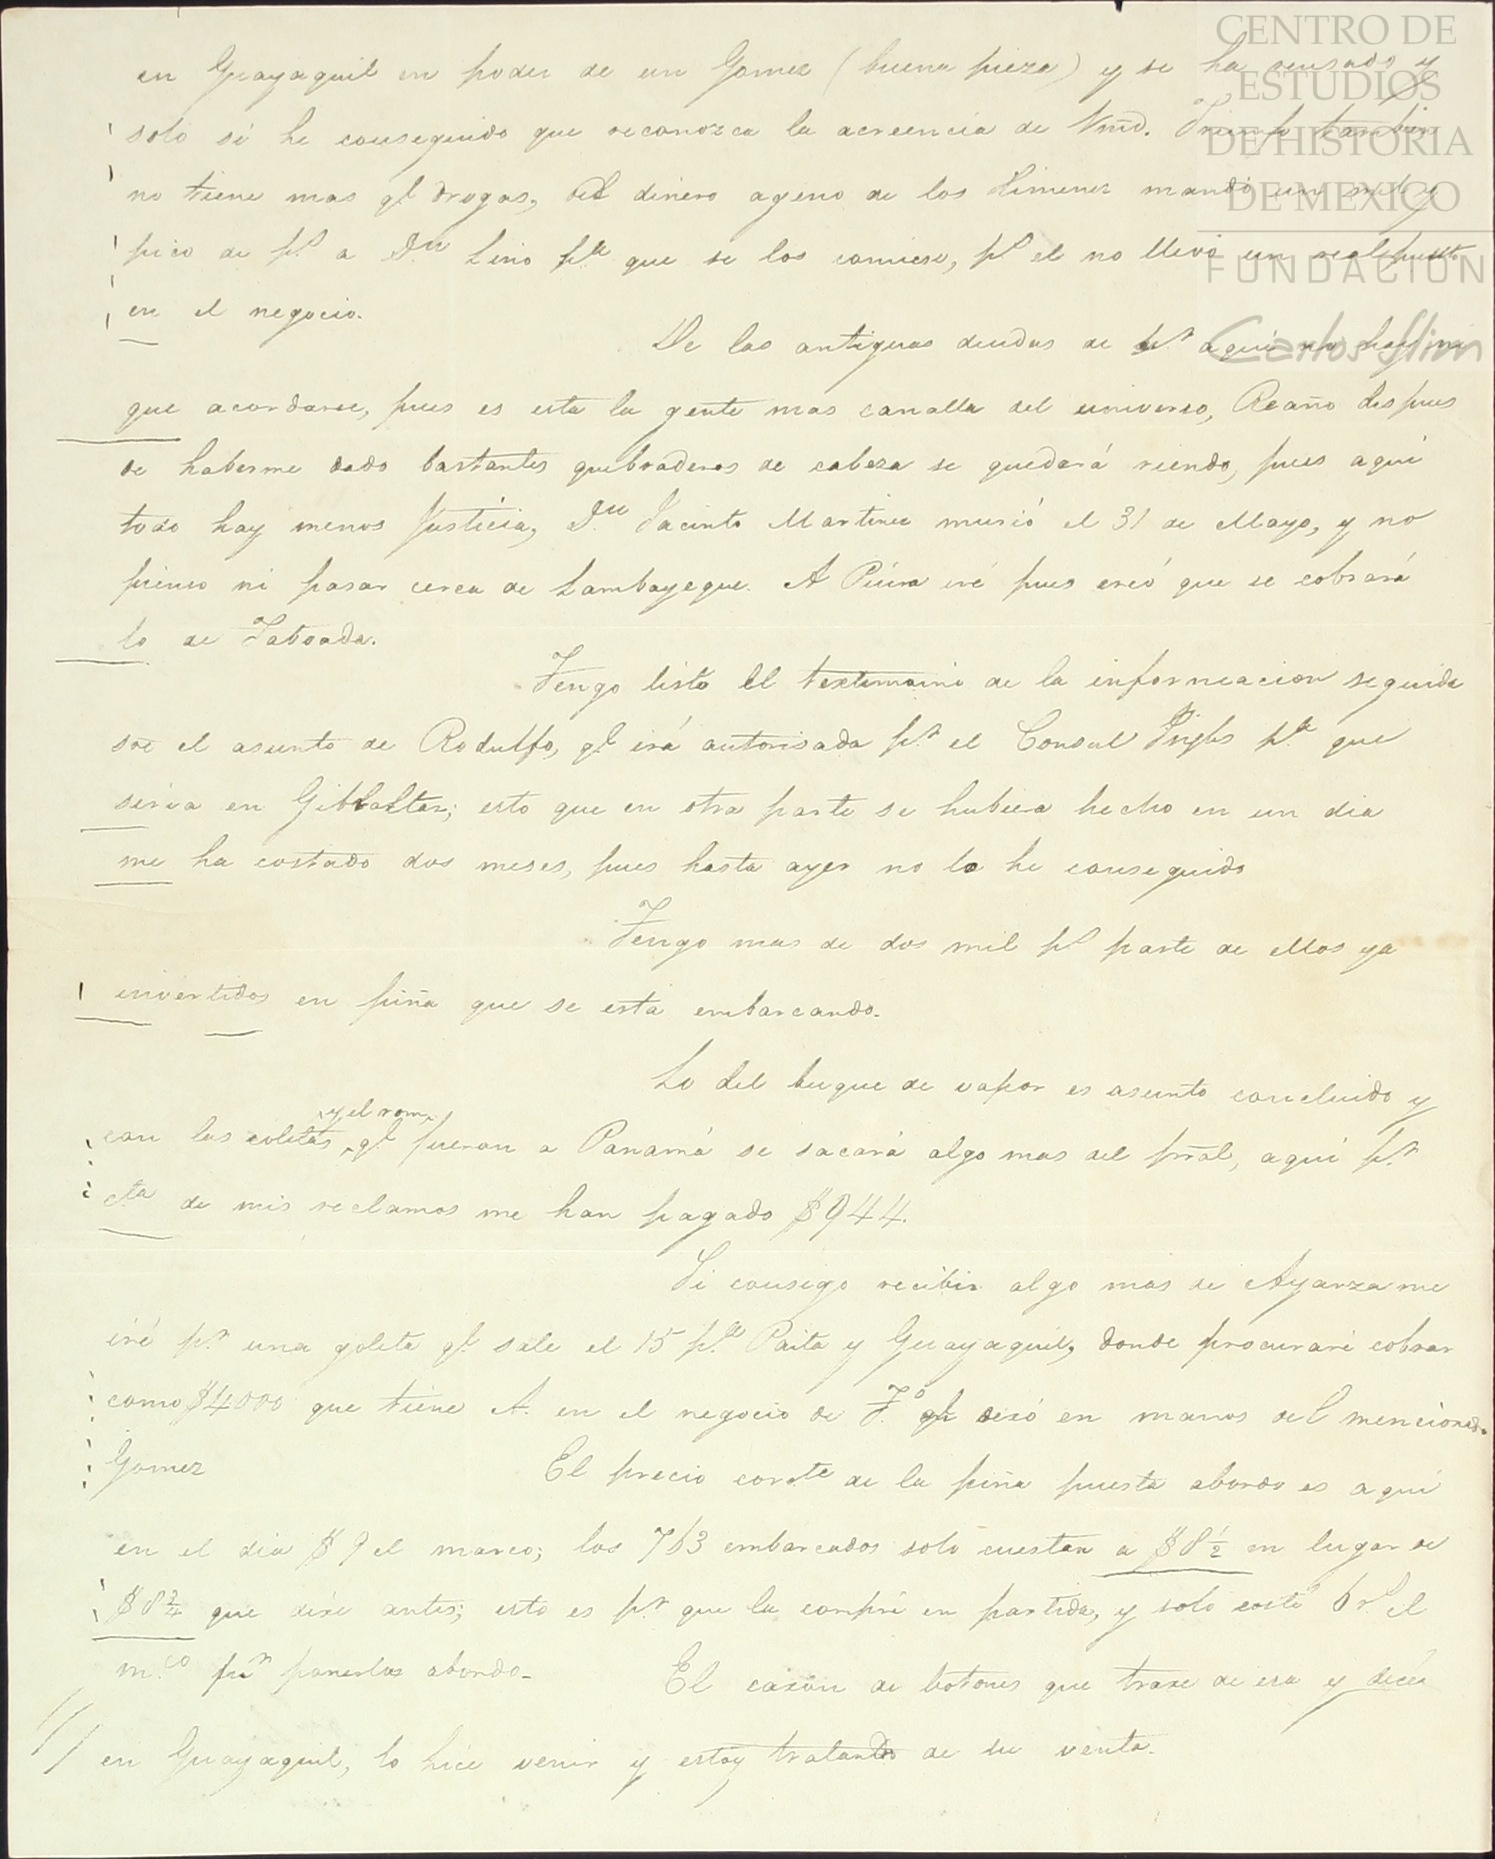 CENTRO DE
ESTUDIOS
DE HISTORIA
DE MEXICO
FUNDACIÓN
Carlos Slim
en Guayaquil en poder de un Gomez (buena pieza) y se ha y
solo si he conseguido que reconozca la acreencia de Vmd. tambien
no tiene mas q.e drogas, del dinero ageno de los Ximenez mandó un mil y
pico de p.s a D.n Lino p.a que se los comiese, p.s el no llevó un real puesto
en el negocio.
De las antiguas deudas de p.r aquí no hay ni
que acordarse, pues es esta la gente mas canalla del universo, Reaño despues
de haberme dado bastantes quebraderos de cabeza se quedará riendo, pues aquí
todo hay menos Justicia, D.n Jacinto Martinez murió el 31 de Mayo, y no
pienso ni pasar cerca de Lambayeque. A Piúra iré pues creó que se cobrará
lo de Taboada.
Tengo listo el textimonio de la informacion seguida
sōe el asunto de Rodulfo, q.e irá autorisada p.r el Consul Ingles p.a que
sirva en Gibraltar; esto que en otra parte se hubiera hecho en un dia
me ha costado dos meses, pues hasta ayer no lo he conseguido
Tengo mas de dos mil p.s parte de ellos ya
invertidos en piña que se está embarcando.
Lo del buque de vapor es asunto concluido y
y el rom
con las coletas q.e fueron a Panamá se sacará algo mas del pral, aquí p.r
cta de mis reclamos me han pagado $944.
Si consigo recibir algo mas de Ayarza me
iré p.r una goleta q.e sale el 15 p.a Paita y Guayaquil, donde procuraré cobrar
como $4000 que tiene A. en el negocio de F.o q.e dexó en manos del mencionado
Gomez
El precio corrte de la piña puesta abordo es aquí
en el dia $9 el marco; los 763 embarcados solo cuestan a $8½ en lugar de
$8¾ que dixe antes; esto es p.r que la compré en partida, y solo costó 6 r.s el
m.co p.r ponerlos abordo.
El caxon de botones que traxe de esa y dexé
en Guayaquil, lo hice venir y estoy tratando de su venta.